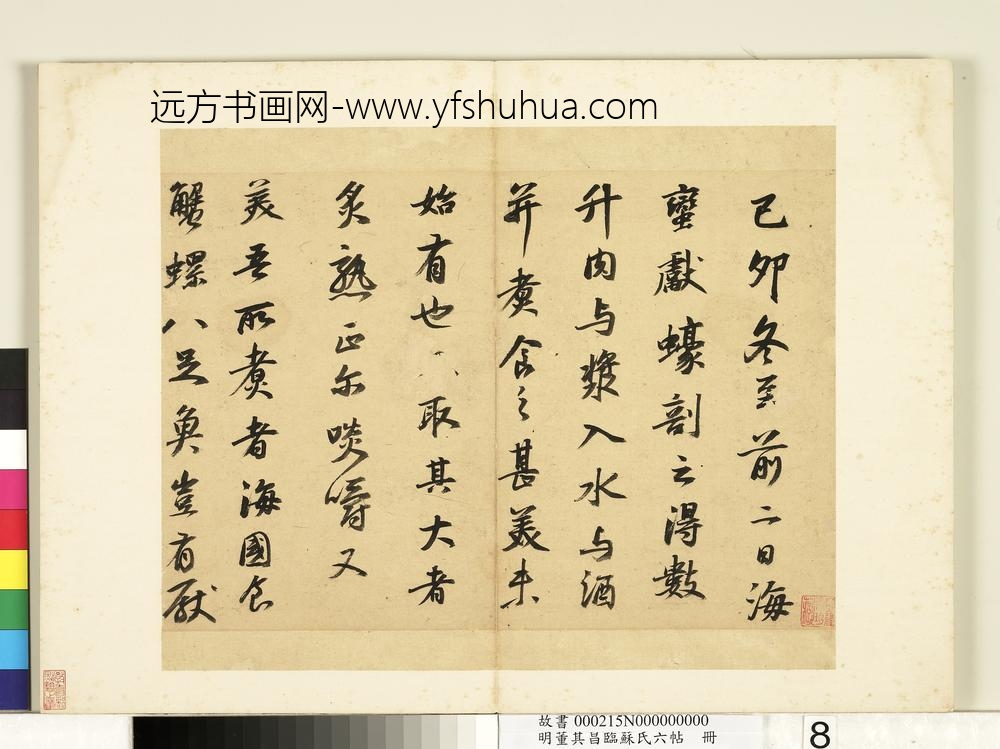 远方书画网-www.yfshuhua.com
己卯冬至前二日海
蠻獻蠔剖之得數
升肉与漿入水与酒
并煑食之甚美未
始有也取其大者
炙熟正尔啖嚼又
美吾所煑者海國食
蟹螺八足魚豈有厭
故書 000215N000000000
明董其昌臨蘇氏六帖 冊
8